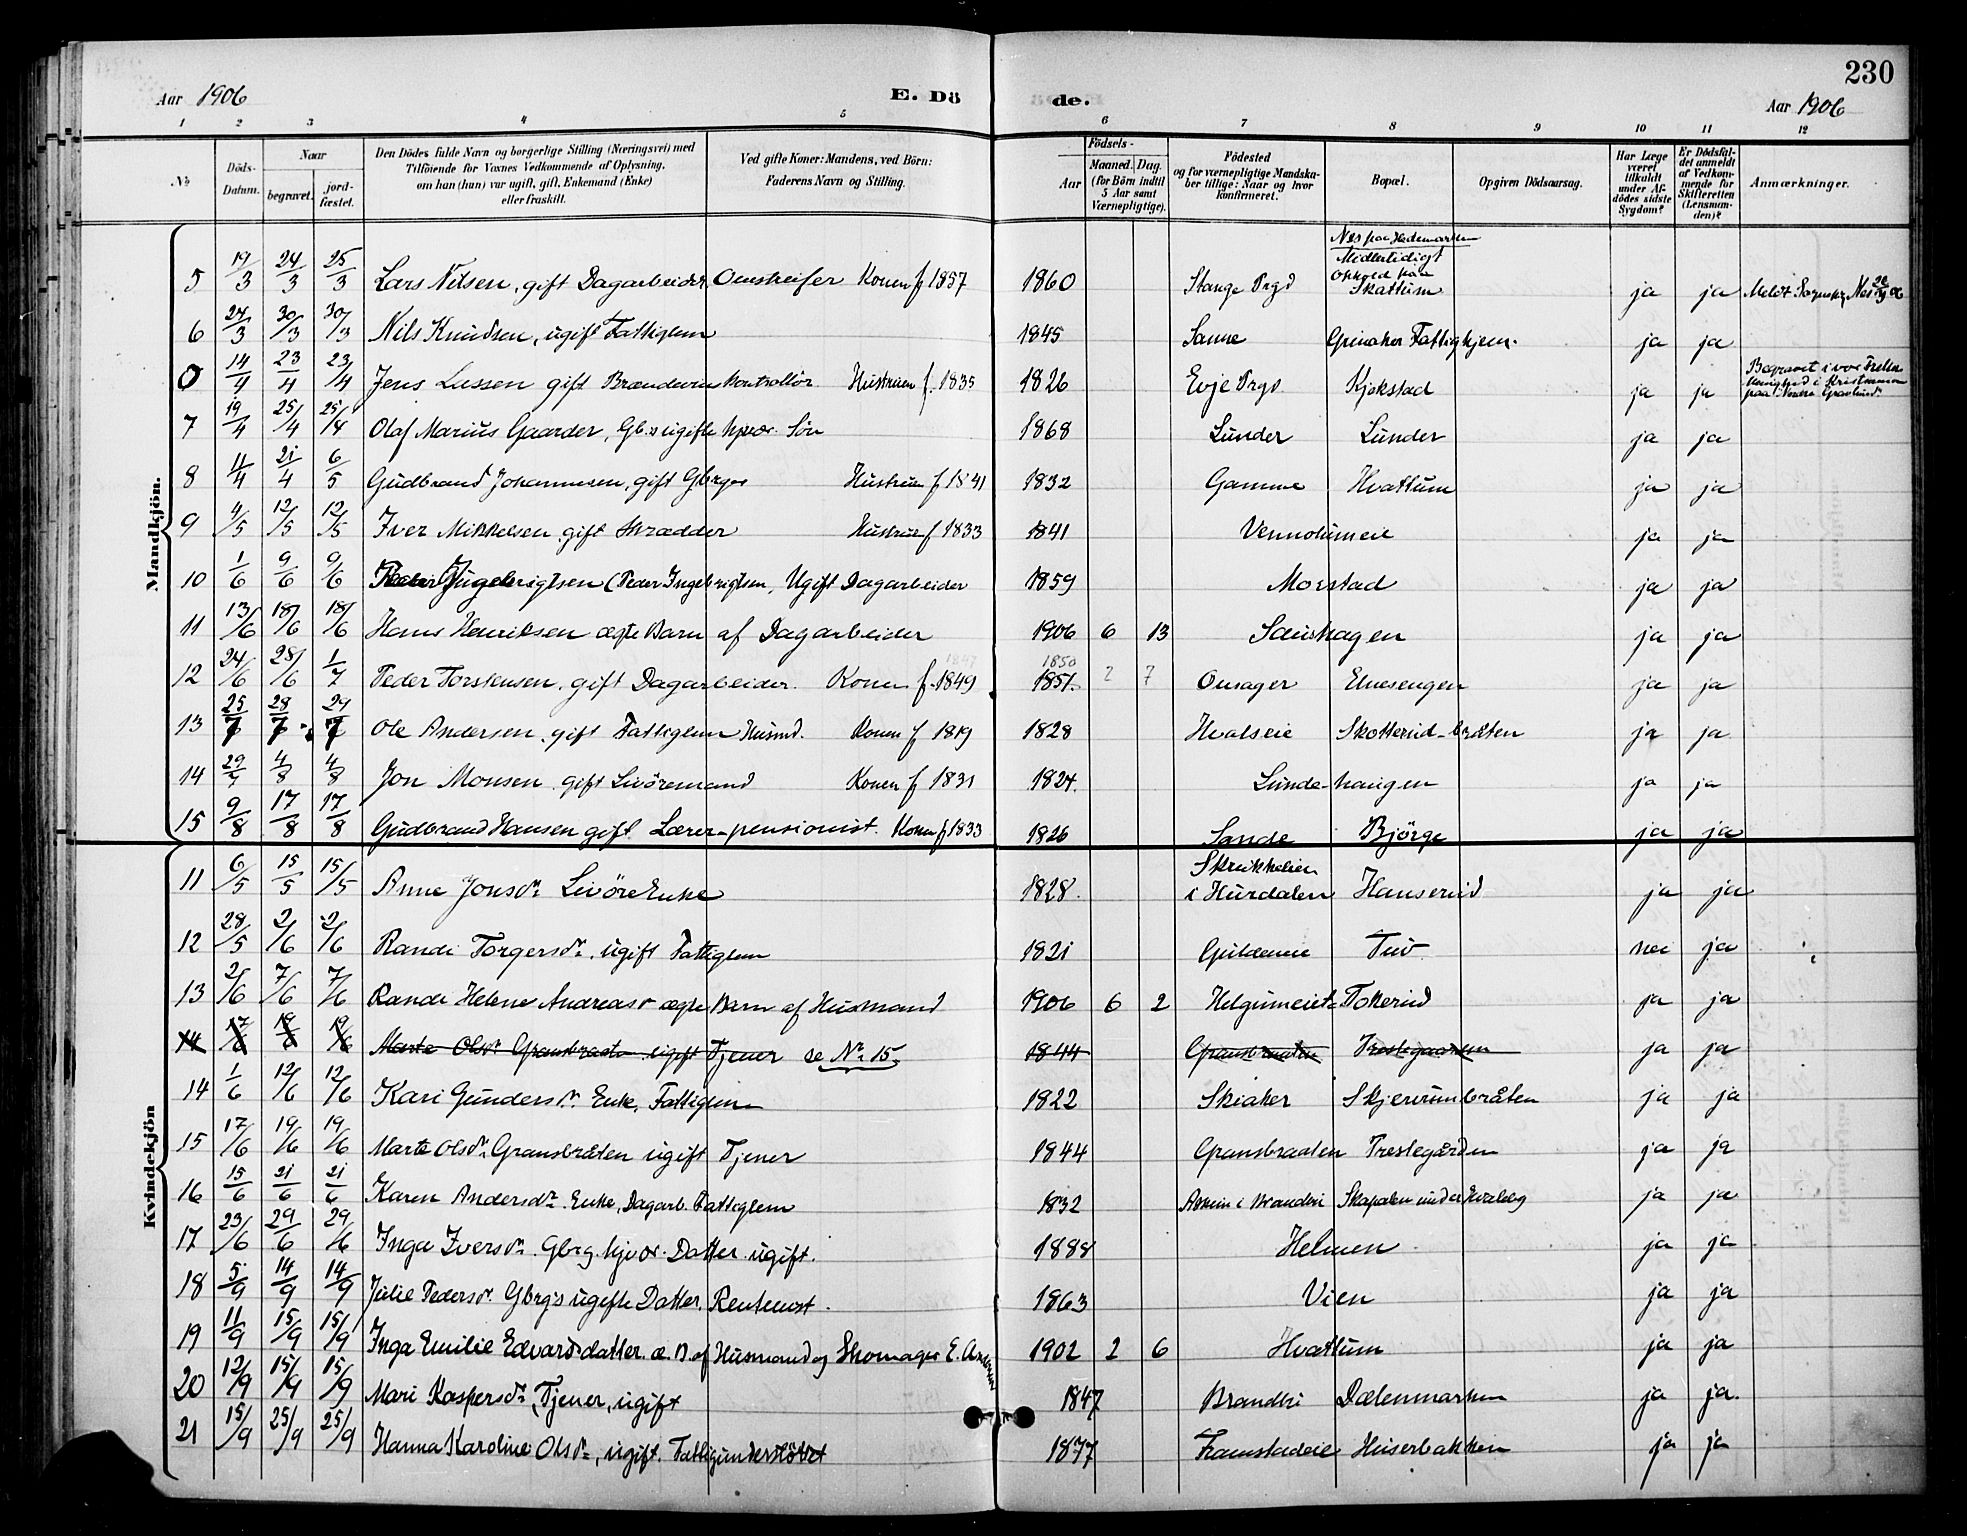 230
Aar 1906 E. Dö de. Aar 1906
1 2 3 4 5 6 7 8 9 10 11 12
No
Döds-Datum.
Naar begravet. jord-fæstet.
Den Dödes fulde Navn og borgerlige Stilling (Næringsvei) med Tilföiende for Voxnes Vedkommende af Oplysning, om han (hun) var ugift, gift, Enkemand (Enke) eller fraskilt.
Ved gifte Koner: Mandens, ved Börn: Faderens Navn og Stilling.
Födsels- Aar Maaned. Dag. (for Börn indtil 5 Aar samt Værnepligtige).
Födested og for værnepligtige Mandska-ber tillige: Naar og hvor konfirmeret.
Bopæl.
Opgiven Dödsaarsag.
Har Læge været tilkaldt under Af-dödes sidste Sygdom?
Er Dödsfal-det anmeldt af Vedkom-mende for Skifteretten (Lensman-den)?
Anmærkninger.
Mandkjön.
5 19/3 24/3 25/3 Lars Nilsen, gift Dagarbeider, Omstreifer Konen f 1857 1860 Stange Prgd Nes paa Hedemarken Midlertidigt Ophold paa Skattum ja ja
6 24/3 30/3 30/3 Nils Knudsen, ugift Fattiglem 1845 Sanne Grinaker Fattighjem. ja ja
0 14/4 23/4 23/4 Jens Lassen gift Brændevinkontrollör Hustruen f. 1835 1826 Evje Prgd Kjekstad ja ja
7 19/4 25/4 25/4 Olaf Marius Gaarder, Gb.s ugifte hjvær. Sön 1868 Lunder Lunder ja ja
8 11/4 21/4 6/5 Gudbrand Johannesen, gift Gbrgs Hustruen f 1841 1832 Gamme Hvattum ja ja
9 4/5 12/5 12/5 Iver Mikkelsen gift Skrædder Hustru f 1833 1841 Vennolumeie ja ja
10 1/6 9/6 9/6 Peder Ingebrigtsen (Peder Ingebrigtsen, Ugift Dagarbeider 1859 Morstad ja ja
11 13/6 18/6 18/6 Hans Henriksen ægte Barn af Dagarbeider 1906 6 13 Saushagen ja ja
12 24/6 28/6 1/7 Peder Torstensen, gift Dagarbeider. Konen f. 1849 1847 1851. 1850 2 7 Onsager Elnesengen ja ja
13 25/7 28/7 29/7 Ole Andersen, gift Fattiglem Husmd. Konen f 1819 1828 Hvalseie Skotterud-bråten ja ja
14 29/7 4/8 4/8 Jon Monsen gift Livöremand Konen f 1831 1824. Lunde-haugen ja ja
15 9/8 17/8 17/8 Gudbrand Hansen gift Lærer-pensionist. Konen f 1833 1826 Sande Björge ja ja
Kvindekjön
11 6/5 15/5 15/5 Anne Jonsdr. Livöre Enke 1828. Skrukkelien i Hurdalen Hanserud ja ja
12 28/5 2/6 2/6 Randi Torgersdr. ugift Fattiglem 1821 Guldeneie Tuv nei ja
13 2/6 7/6 7/6 Randi Helene Andreasdr ægte Barn af Husmand 1906 6 2 Helgumeiet Tokerud ja ja
14 17/6 19/6 19/6 Marte Olsdr. Gransbraaten ugift Tjener se No. 15. 1844 Gransbraaten Prestegaarden ja ja
14 1/6 12/6 12/6 Kari Gundersdr. Enke, Fattiglem 1822 Skiaker Skjervumbråten ja ja
15 17/6 19/6 19/6 Marte Olsdr. Gransbråten ugift Tjener 1844 Gransbraaten Prestegården ja ja
16 15/6 21/6 21/6 Karen Andersdr. Enke, Dagarb. Fattiglem 1832 i Brandbu Skapalen under Hvaleby ja ja
17 23/6 29/6 29/6 Inga Iversdr. Gbrg. hjvær. Datter ugift. 1888 Helmen ja ja
18 5/9 14/9 14/9 Julie Pedersdr. Gbrg's ugifte Datter, Rentenist. 1863 Vien ja ja
19 11/9 15/9 15/9 Inga Emilie Edvardsdatter æ. B. af Husmand og Skomager E. 1902 2 6 Hvattum ja ja
20 12/9 15/9 15/9 Mari Kaspersdr. Tjener, ugift 1847 Brandbu Dælenmarken ja ja.
21 15/9 25/9 25/9 Hanna Karoline Olsdr., ugift. Fattigunderstöttet 1877 Framstadeie Huserbakken ja ja